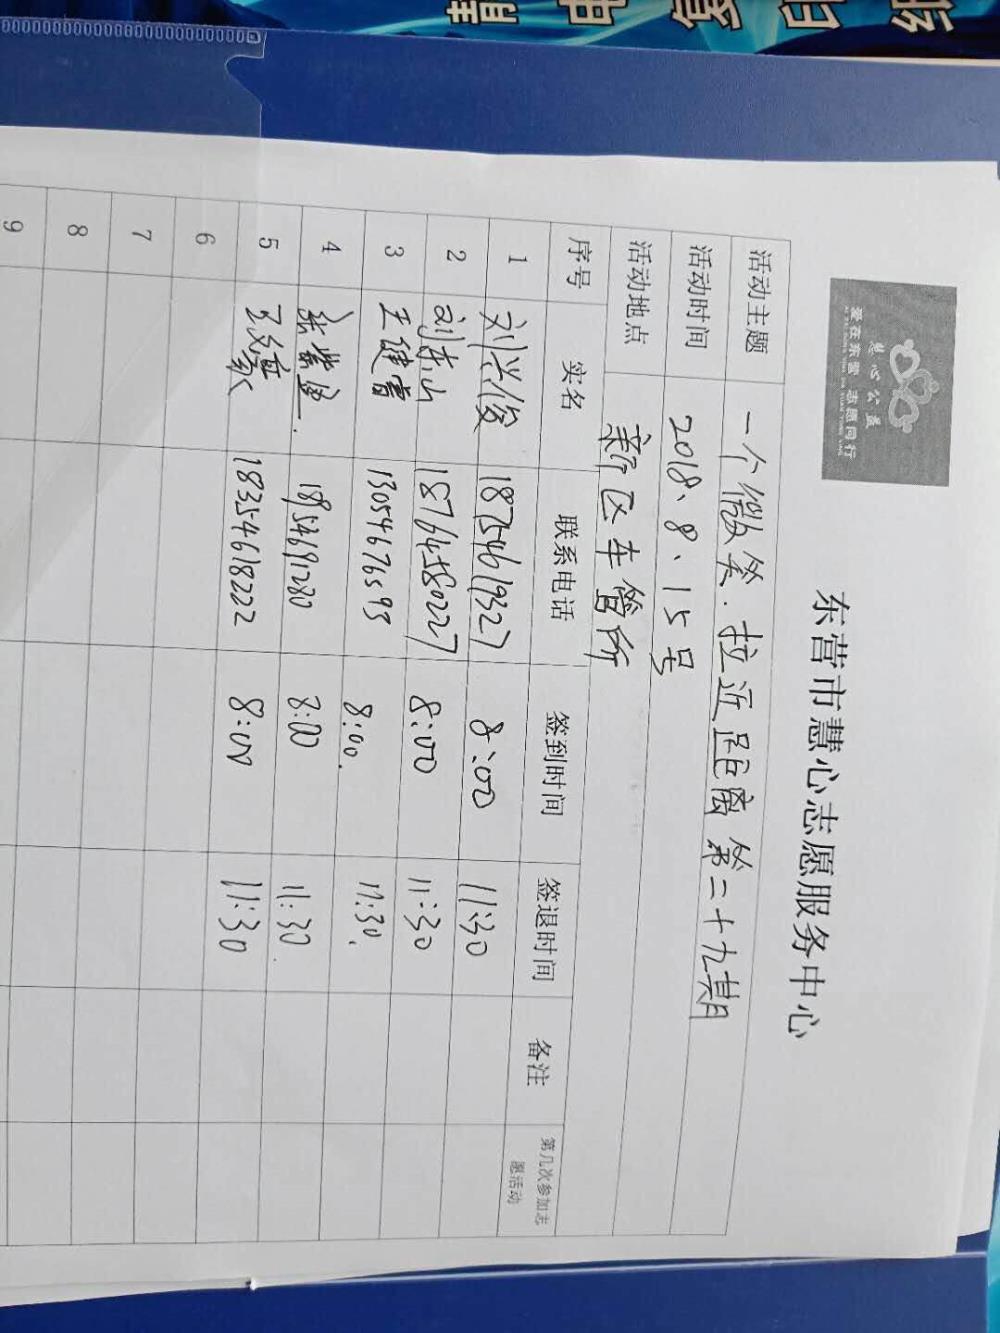 慧心公益
爱在东营 志愿同行
东营市慧心志愿服务中心
活动主题 一个微笑.拉近距离 第二十九期
活动时间 2018、8、15号
活动地点 新区车管所
序号 实名 联系电话 签到时间 签退时间 备注 第几次参加志愿活动
1 刘兴俊 18754619327 8:00 11:30
2 刘东山 18764580227 8:00 11:30
3 王健曹 13054676593 8:00. 11:30.
4 张紫 18954691280 8:00 11:30.
5 18354618222 8:00 11:30
6
7
8
9